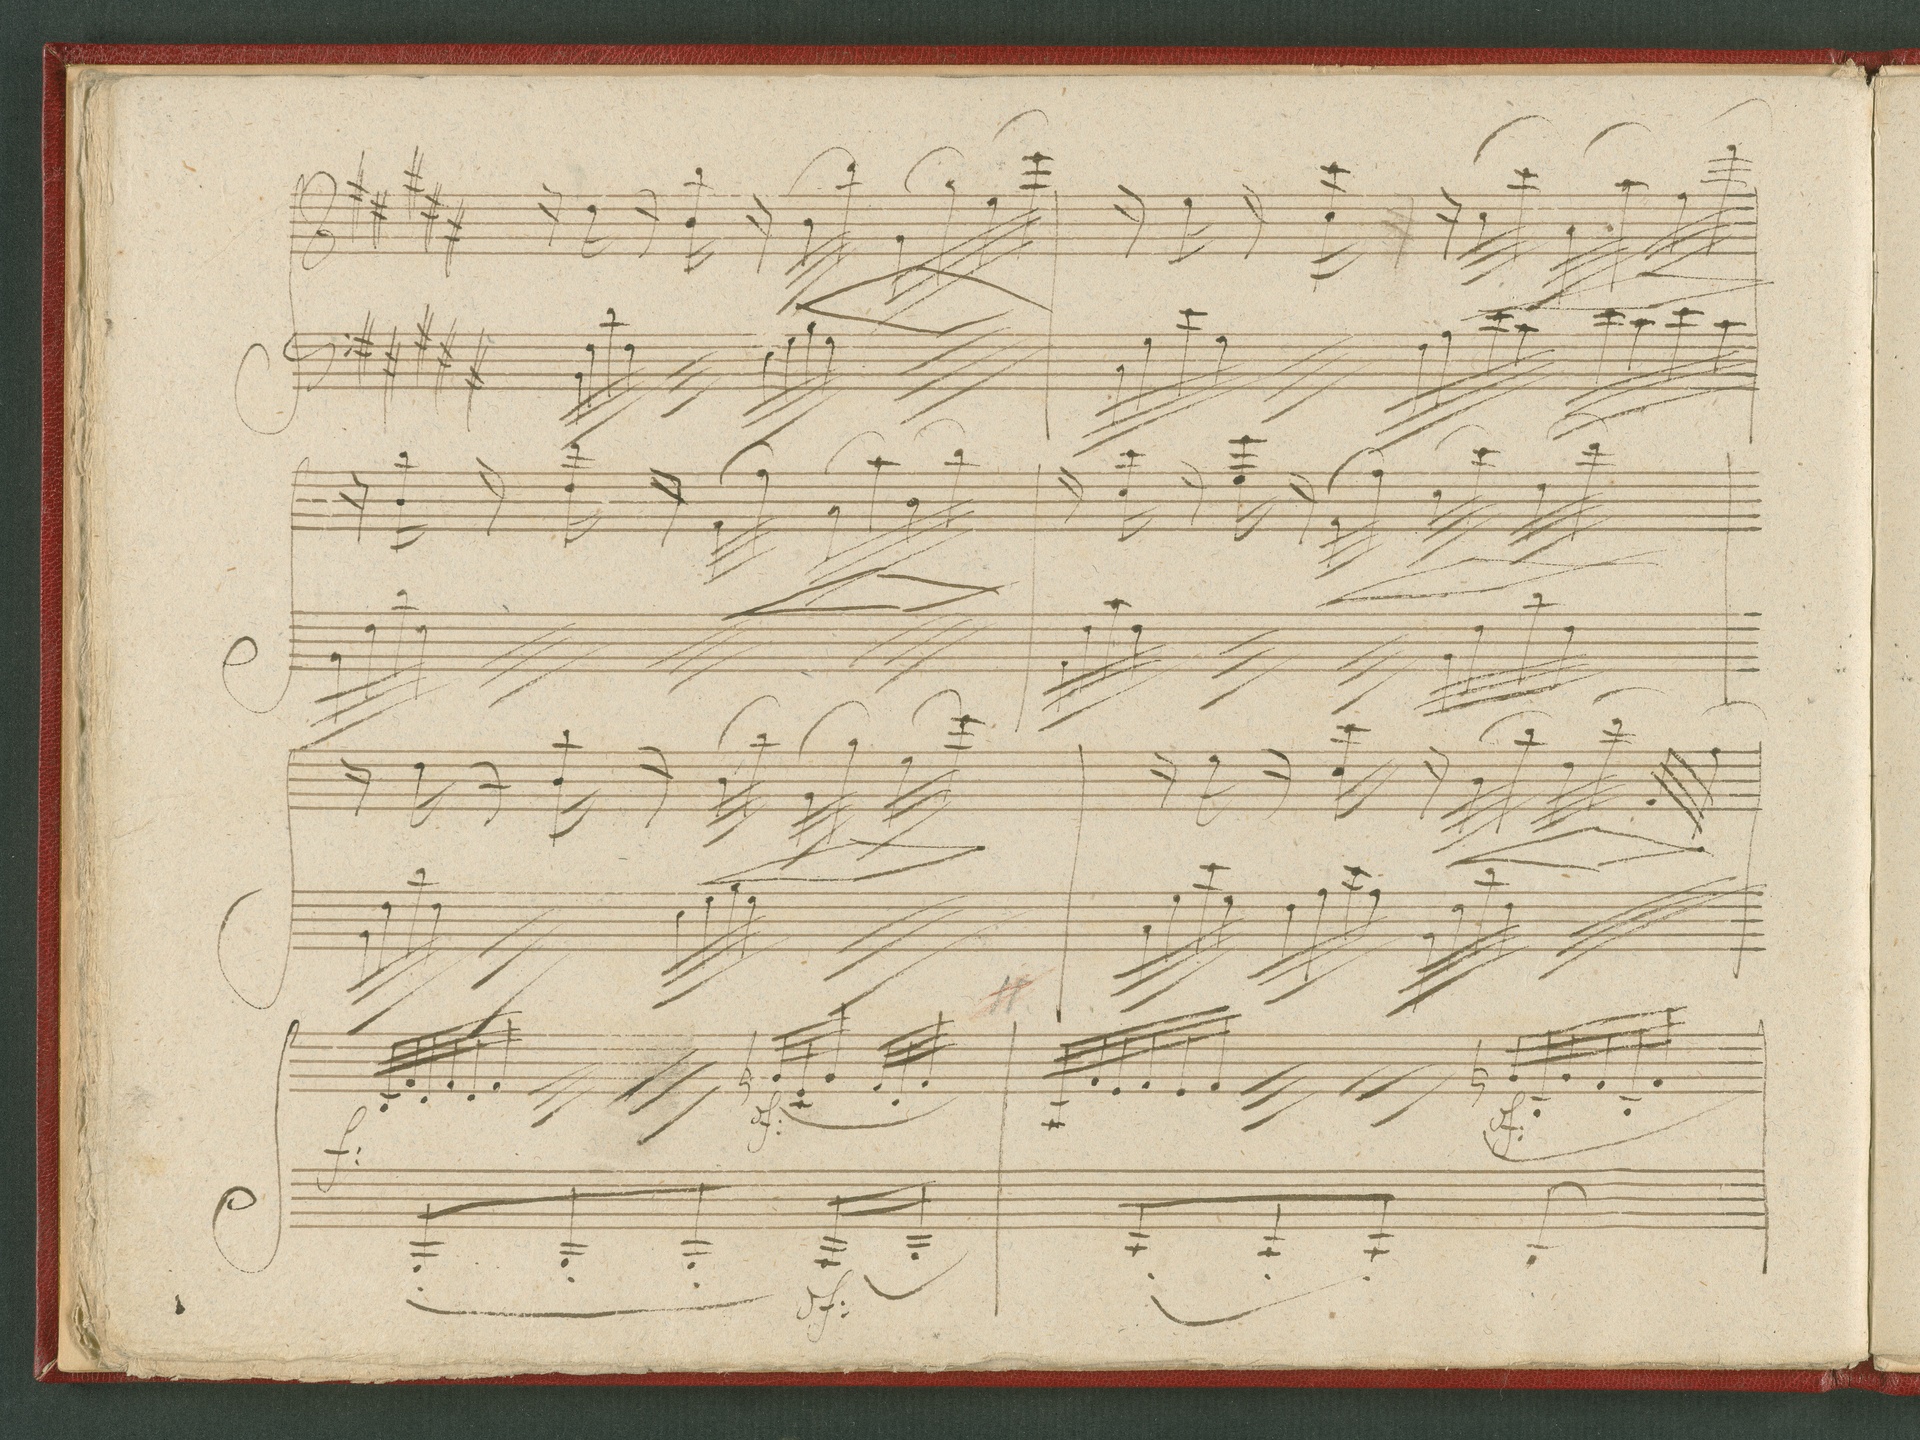 sf:
f:
sf:
sf: